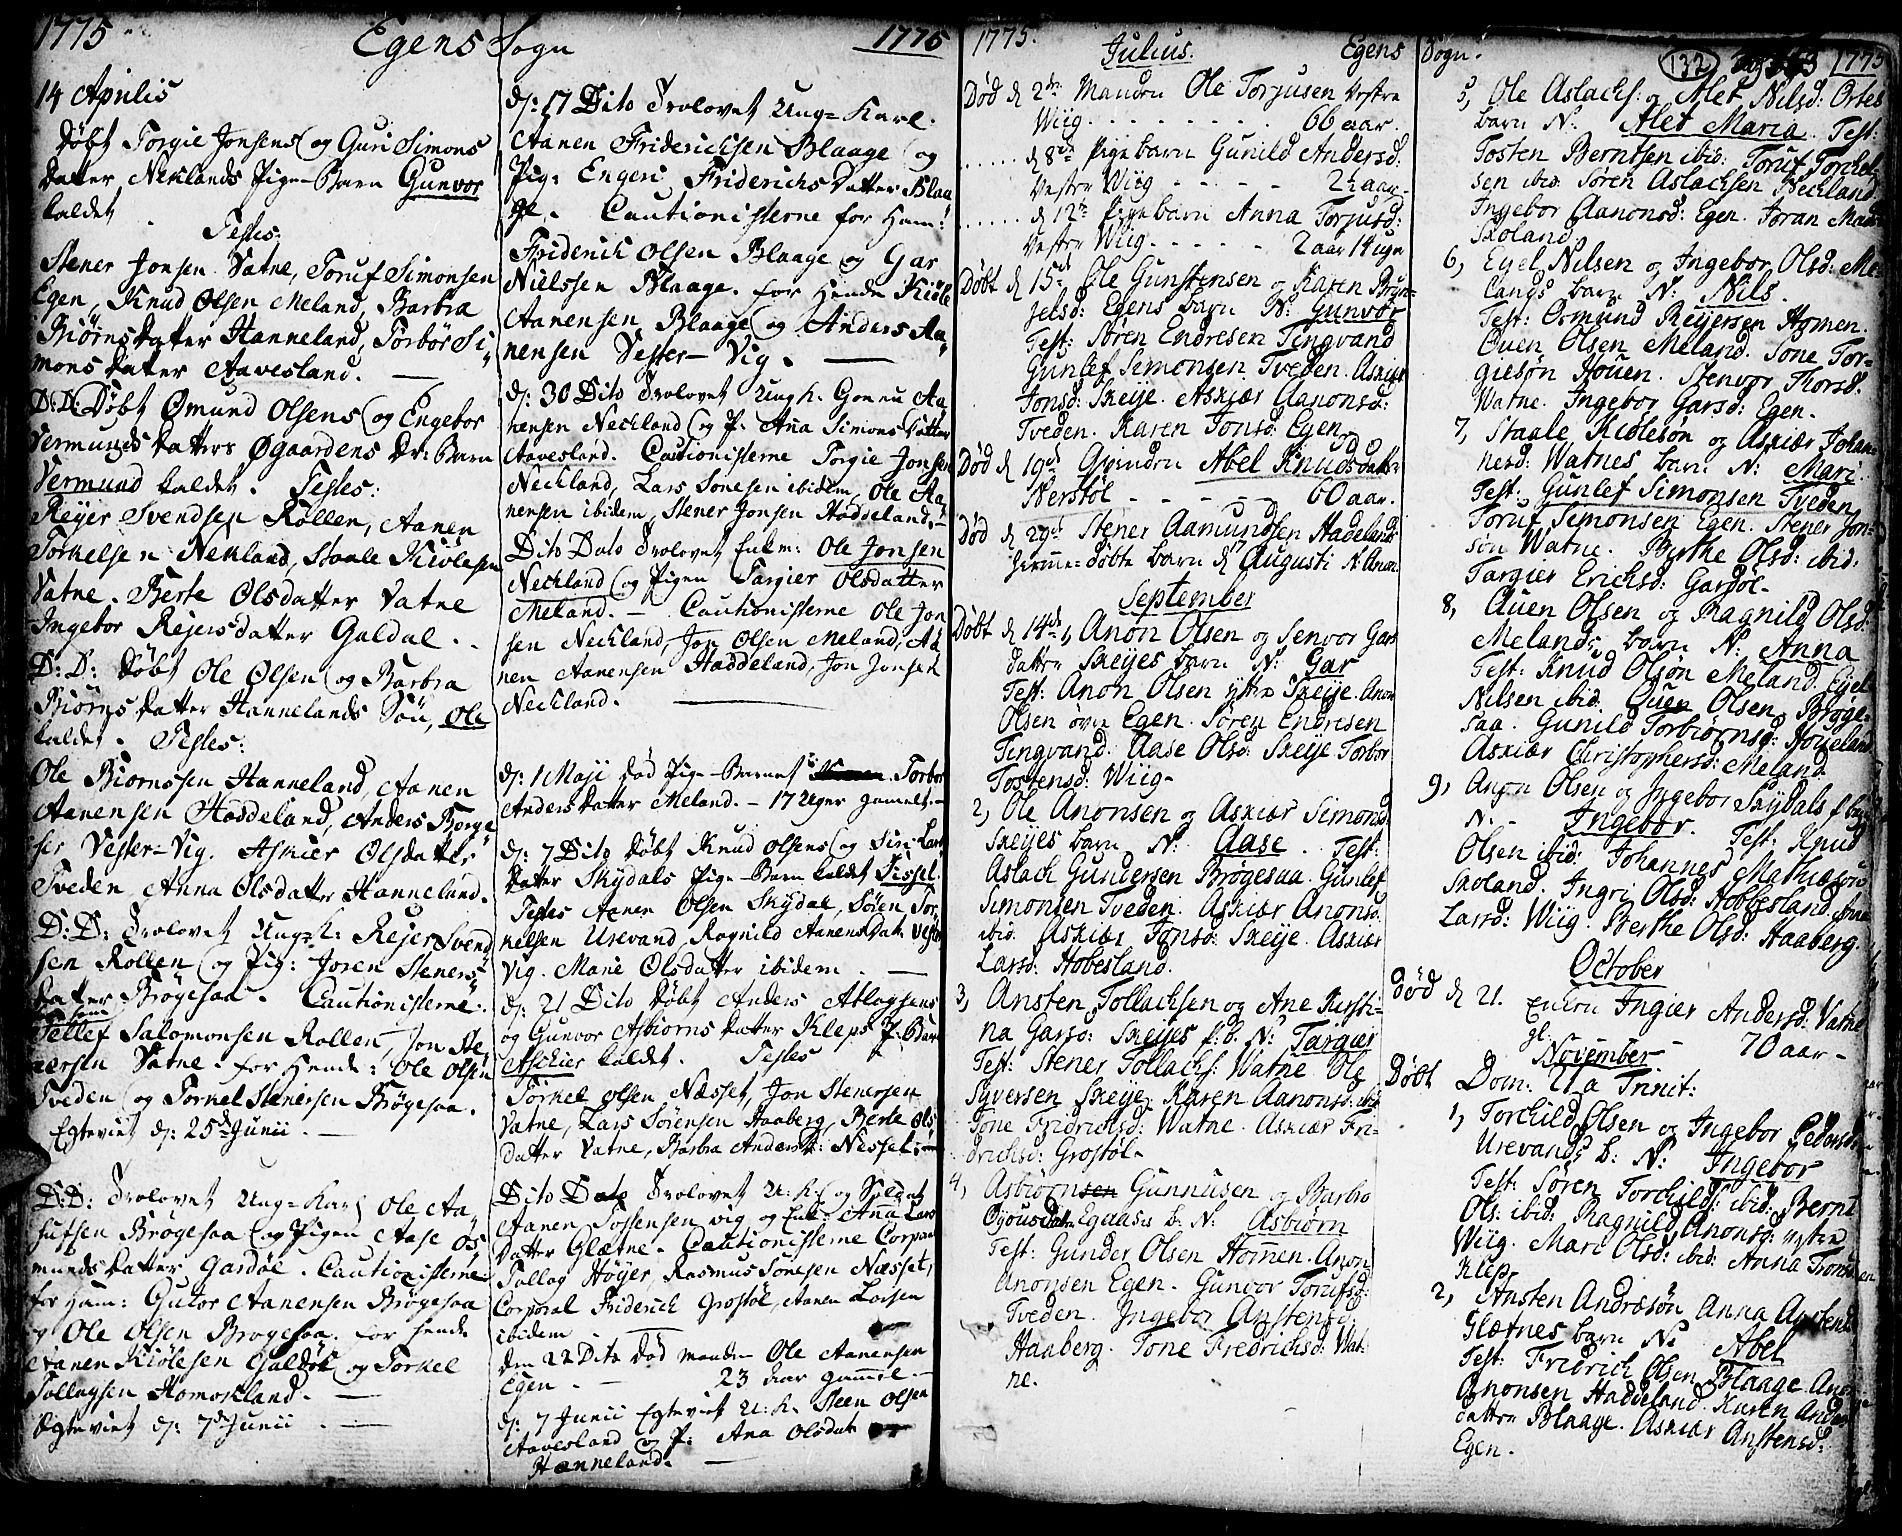 1775 Egens Sogn 1775
14 Aprilis
Døbt Torgie Jonsens og Guri Simons
datter Neklands Pige-Barn Gunvor
kaldet.
Testes:
Stener Jonsen Vatne, Toruf Simonsen
Egen, Knud Olsen Meland, Barbra
Biørnsdatter Hanneland, Torbör Si-
monsdatter Aavesland.
D: D: Døbt Ømund Olsens og Engebor
Vermundsdatters Øgaardens Dr: Barn
Vermund kaldet. Testes:
Reyer Svendsen Rollen, Aanen
Torkelsen Nekland, Staale Kiölesen
Vatne. Berte Olsdatter Vatne
Ingebor Rejersdatter Galdal.
D: D: Døbt Ole Olsen og Barbra
Biørnsdatter Hannelands Sön, Ole
kaldet. Testes:
Ole Biornssen Hanneland, Aanen
Aanensen Haddeland, Anders Börge
ser Vester-Vig. Askier Olsdatter
Tveden, Anna Olsdatter Hanneland.
D: D: Trolovet Ung-k: Rejer Svend
sen Rollen og Pig: Joren Steners
datter Brøgesaa. Cautionisterne
Tellef Salomonsen Rollen, Jon Ste-
nersen Vatne. for Hende: Ole Olsen
Tveden og Torkel Stenersen Brøgesaa.
Egteviet d: 25de Junii.
D: D: Trolovet Ung-Karl Ole Aa-
Brøgesaa og Pigen Aase Os-
mundsdatter Gardøl. Cautionisterne
for Ham: Gutor Aanensen Brøgesaa
og Ole Olsen Brøgesaa. for hende
Aanen Kiölesen Galdöl og Torkel
Tollagsen Homorkland.
Egteviet d: 7de Junii.
d: 17 Dito Trolovet Ung-Karl
Aanen Friderichsen Blaage og
Pig: Engeri Friderichsdatter Blaa
ge. Cautionisterne for Ham:
Friderich Olsen Blaage og Gar
Nielssen Blaage. for Hende Kiöle
Aanensen Blaage og Anders Aa-
nensen Vester-Vig.
d: 30 Dito Trolovet Ung k. Gonnu Aa-
nensen Neckland og P: Ana Simonsdatter
Aavesland. Cautionisterne Torgie Jonsen
Neckland, Lars Sonesen ibidem, Ole Aa-
nensen ibidem, Stener Jonsen Haddeland.
Dito Dato Trolovet Enkm: Ole Jonsen
Neckland og Pigen Targier Olsdatter
Meland. - Cautionisterne Ole Jon
sen Neckland, Jon Olsen Meland, Aa
nen Aanensen Haddeland, Jon Jonsen
Neckland.
d: 1 Maji død Pige-Barnet Torbor
Andersdatter Meland. - 17 Uger gammel.-
d: 7 Dito Døbt Knud Olsens og Siri Lars
datter Skydals Pige-Barn kaldet Sissel.
Testes Aanen Olsen Skydal, Sören Tor-
kelsen Urevand, Ragnild Aanensdat: Vester
Vig. Marie Olsdatter ibidem.
d: 21 Dito Døbt Anders Atlagsens
og Gunvor Asbiornsdatter Kleps P: Barn
Aschier kaldet. Testes
Törkel Olsen Næsset, Jon Stenersen
Vatne, Lars Sörensen Haaberg, Berte Ols
datter Vatne, Barbra Andersd: Nesset.
Dito Dato Trolovet U: K: og Soldat
Aanen Tossensen Vig og Enk- Ana Lars
datter Glætne. Cautionisterne Corporal
Tollag Höyer, Rasmus Sonesen Næsset,
Corporal Friderich Grostöl, Aanen Larsen
ibidem.
den 22 Dito död Manden Ole Aanensen
Egen. - 23 Aar gammel.
d: 7 Junii Egteviet U: k. Steen Olsen
Aavesland og P: Ana Olsdat
Hanneland.
1775. Julius. Egens
Død d 2de Manden Ole Torjusen Vestre
Wiig. 66 aar.
d 8de Pigebarn Gunild Andersd:
Vestre Wiig - 2½ aar
d 12te Pigebarn Anna Torjusd:
Vestre Wiig. 2 aar 14 uger
Døbt d 15de Ole Gunstensen og Karen Bryn-
jelsd: Egens barn N: Gunvor
Test: Søren Endresen Tingvand
Gunlef Simonsen Tveden. Askiær
Jonsd: Skeije. Askiær Aanonsd:
Tveden. Karen Jonsd: Egen
Død d 19de Qvinden Abel Knudsdatter
Nerstøl - 60 aar.
Død d 29de Stener Aamundsen Hadelands
hiemme-døbte barn d 17 Augusti N: Anon
September
Døbt d 14de 1, Anon Olsen og Senvor Gars
datter Skeijes barn N: Gar
Test: Anon Olsen yttre Skeije. Anon
Olsen øvre Egen. Søren Endresen
Tingvand. Aase Olsd: Skeije Torbor
Tostensd: Wiig-
2, Ole Anonsen og Askiær Simonsd:
Skeijes barn N: Aase. Test:
Aslach Gundersen Brøgesaa. Gunlef
Simonsen Tveden. Askiær Anonsd:
ibid. Askiær Jonsd: Skeije. Askiær
Larsd: Hobesland.
3, Ansten Tollachsen og Ane Kirsti-
na Garsd: Skeijes p. b. N: Targier
Test: Stener Tollachs: Watne Ole
Syversen Skeije. Karen Aanonsd: ibid
Tone Fridrichsd: Watne. Askiær Fri-
drichsd: Grostøl-
4, Asbiørnsen Gunnusen og Barbro
Egaas b: N: Asbiørn
Test: Gunder Olsen Homen. Anon
Anonsen Egen. Gunvor Torufsd:
Tveden. Ingebor Anstensd:
Haaberg. Tone Fredrichsd: Wat-
ne.
Sogn. 132 1775
5, Ole Aslachs: og Alet Nilsd: Ortes
barn N: Alet Maria. Test:
Tosten Berntsen ibid: Toruf Torchel-
sen ibid. Søren Aslachsen Neckland
Ingebor Aanonsd: Egen. Joran
Skoland
6, Eyel Nilsen og Ingebor Olsd: Me-
lands barn N: Nils.
Test: Osmund Reijersen Homen.
Ouen Olsen Meland. Sone Tor-
giesøn Houen. Stenvor Thorsd:
Watne. Ingebor Garsd: Egen.
7, Staale Kiølesøn og Askiær Johan-
nesd: Watnes barn N: Mari.
Test: Gunlef Simonsen Tveden
Toruf Simonsen Egen. Stener Jon-
søn Watne. Berthe Olsd: ibid.
Targier Erichsd: Gardøl-
8, Auen Olsen og Ragnild Olsd:
Melands barn N: Anna
Test: Knud Olsøn Meland. Eyel
Nilsen ibid. Ouen Olsen Brøge-
saa. Gunild Torbiørnsd: Houeland
Askiær Christophersd: Meland
9, Anon Olsen og Ingebor Skydals p bar
N. - Ingebor. Test: Knud
Olsen ibid: Johannes Mathiasøn
Skoland. Ingri Olsd: Hobbesland. Ane
Larsd: Wiig. Berthe Olsd: Haaberg.
October
Død d 21. Enken Ingier Andersd: Vatne
gl. - 70 aar -
November
Døbt Dom: 21 a Trinit:
1, Torchild Olsen og Ingebor Pedersd:
Urevands b: N: Ingebor
Test: Søren Torchilds: ibid: Bernt
Ols: ibid: Ragnild Anonsd: Vestre
Wiig. Mari Olsd: ibid: Anna Tronsd
Klep
2, Ansten Andræsøn Anna Anstensd
Glætnes barn N: Abel
Test: Fridrich Olsen Blaage. Anon
Anonsen Haddeland. Karen Anders
datter Blaage. Askiær Anstensd:
Egen.